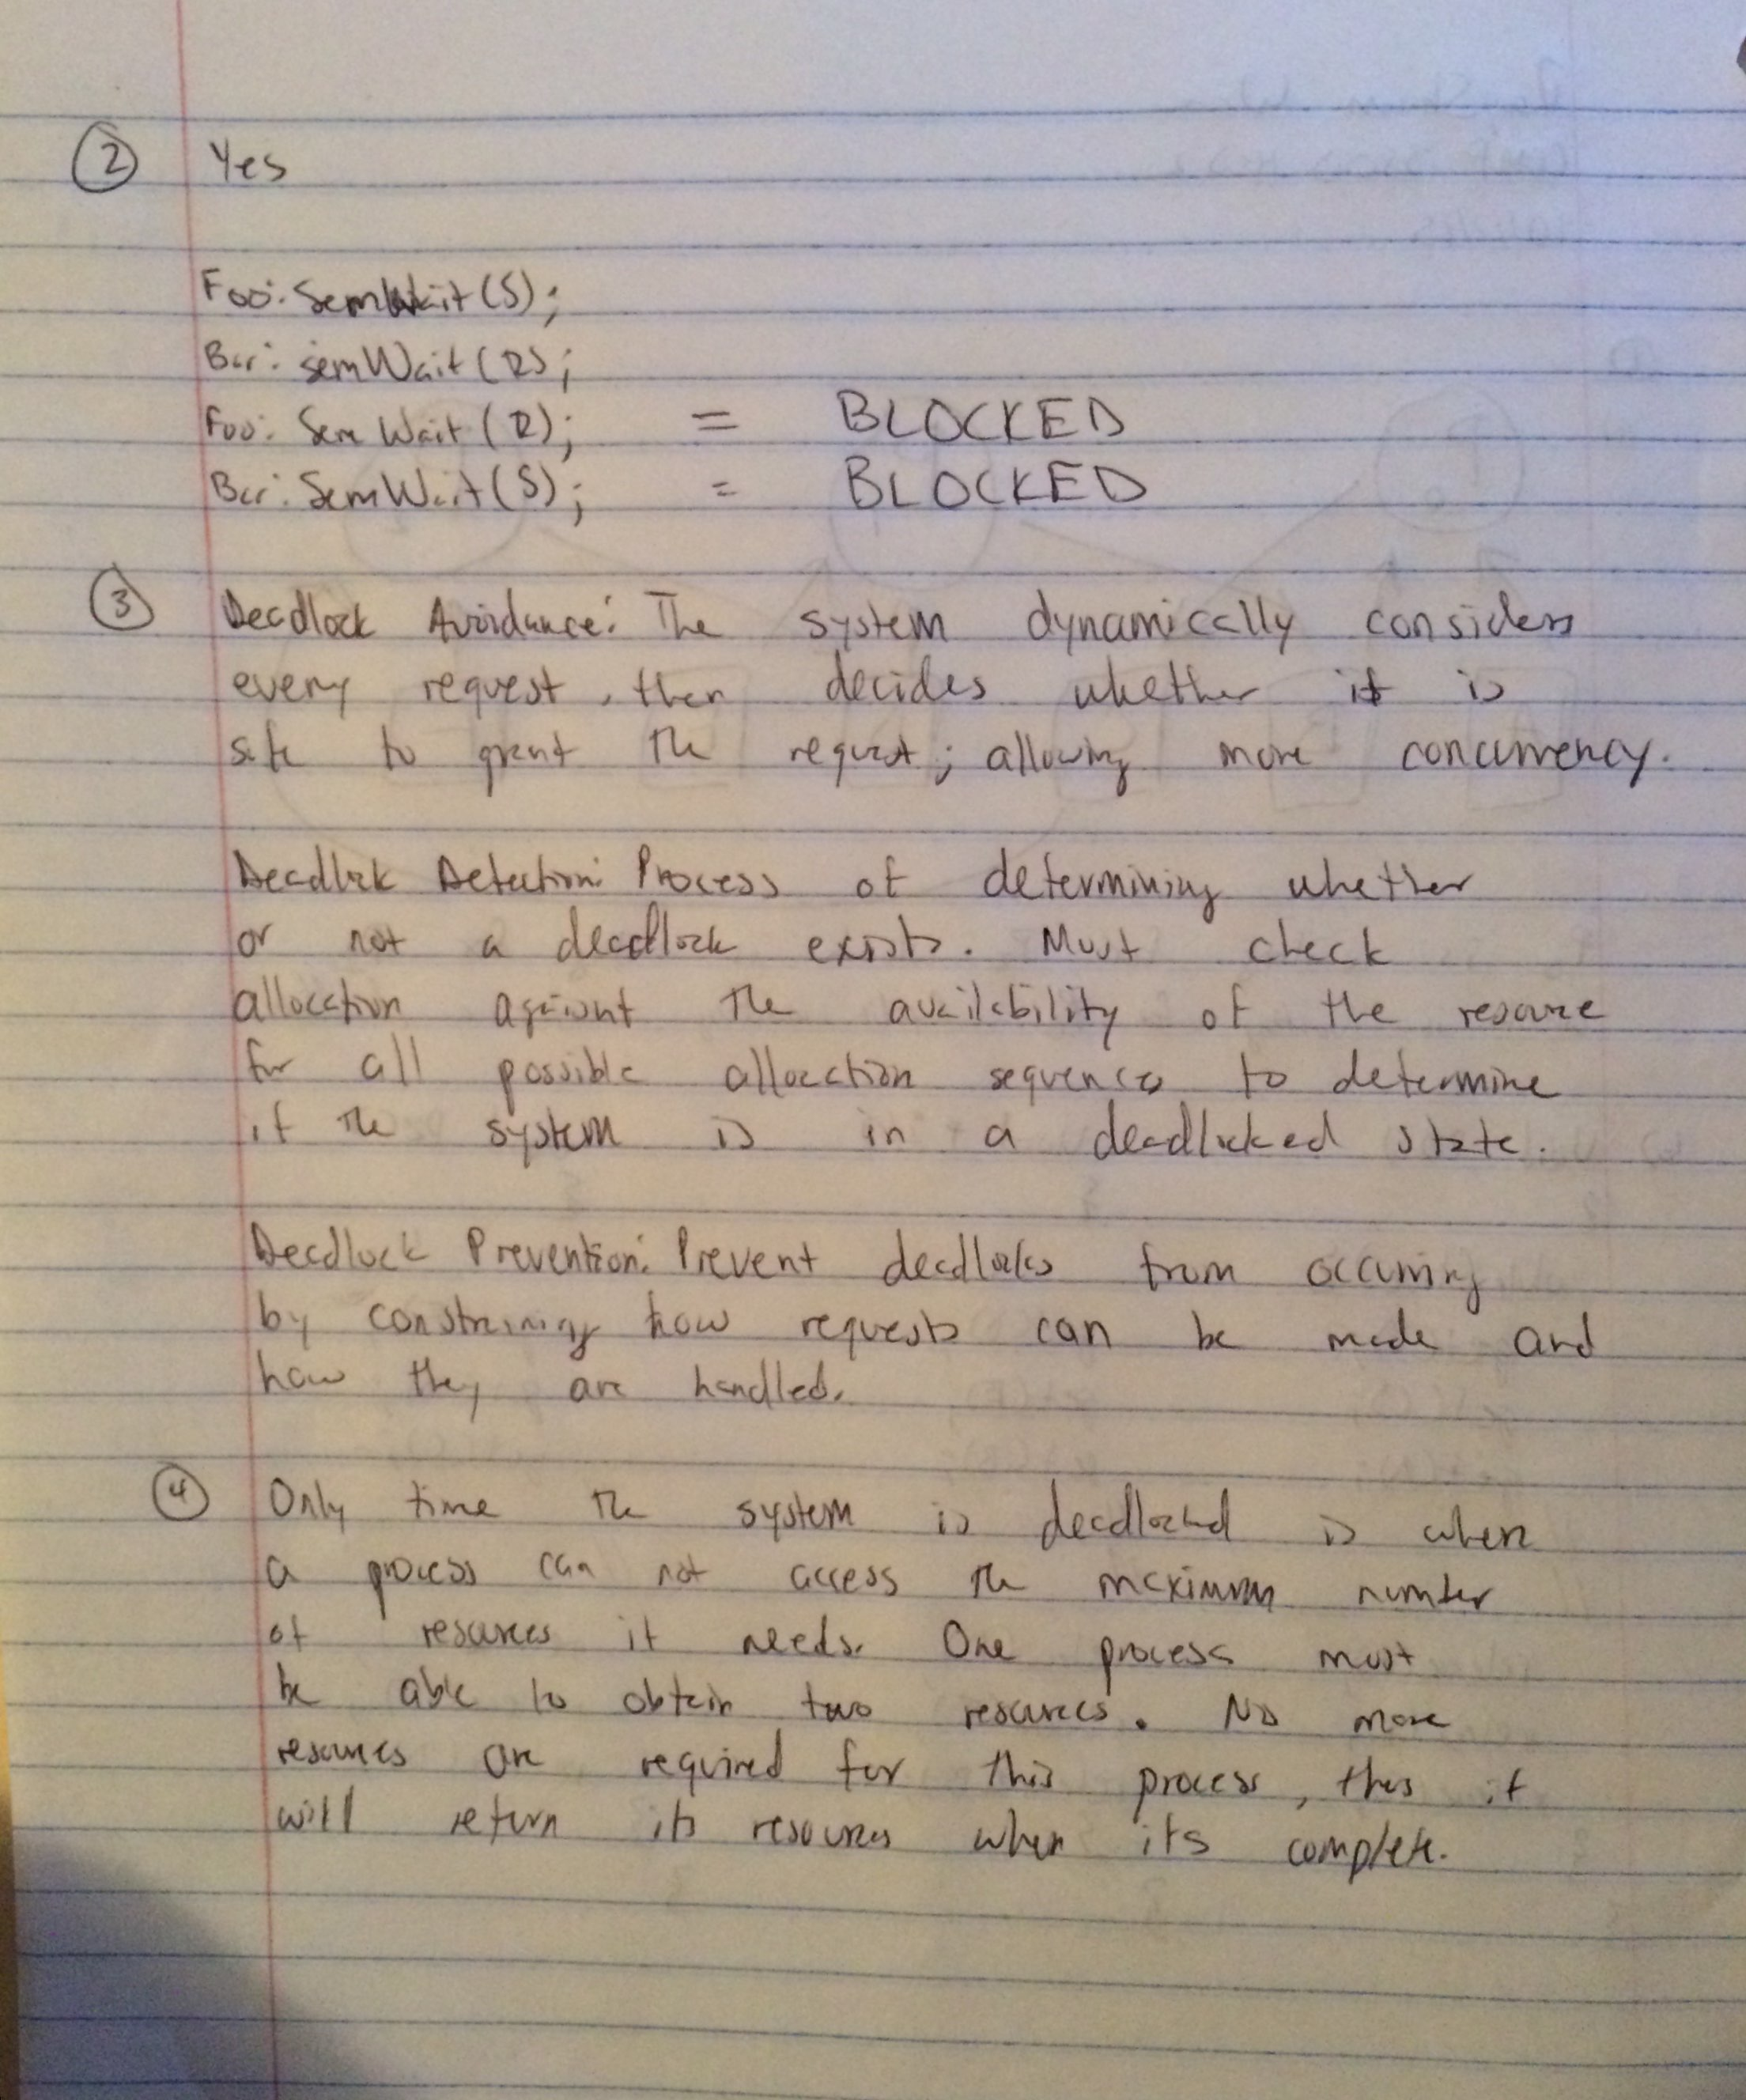 2 Yes
Foo: SemWait(S);
Bar: semWait(R);
Foo: SemWait(R); = BLOCKED
Bar: SemWait(S); = BLOCKED
3 Deadlock Avoidance: The system dynamically considers
every request, then decides whether it is
safe to grant the request; allowing more concurrency.
Deadlock Detection: Process of determining whether
or not a deadlock exists. Must check
allocation against the availability of the resource
for all possible allocation sequences to determine
if the system is in a deadlocked state.
Deadlock Prevention: Prevent deadlocks from occuring
by constraining how requests can be made and
how they are handled.
4 Only time the system is deadlocked is when
a process can not access the maximum number
of resources it needs. One process must
be able to obtain two resources. No more
resources are required for this process, thus it
will return its resources when its complete.